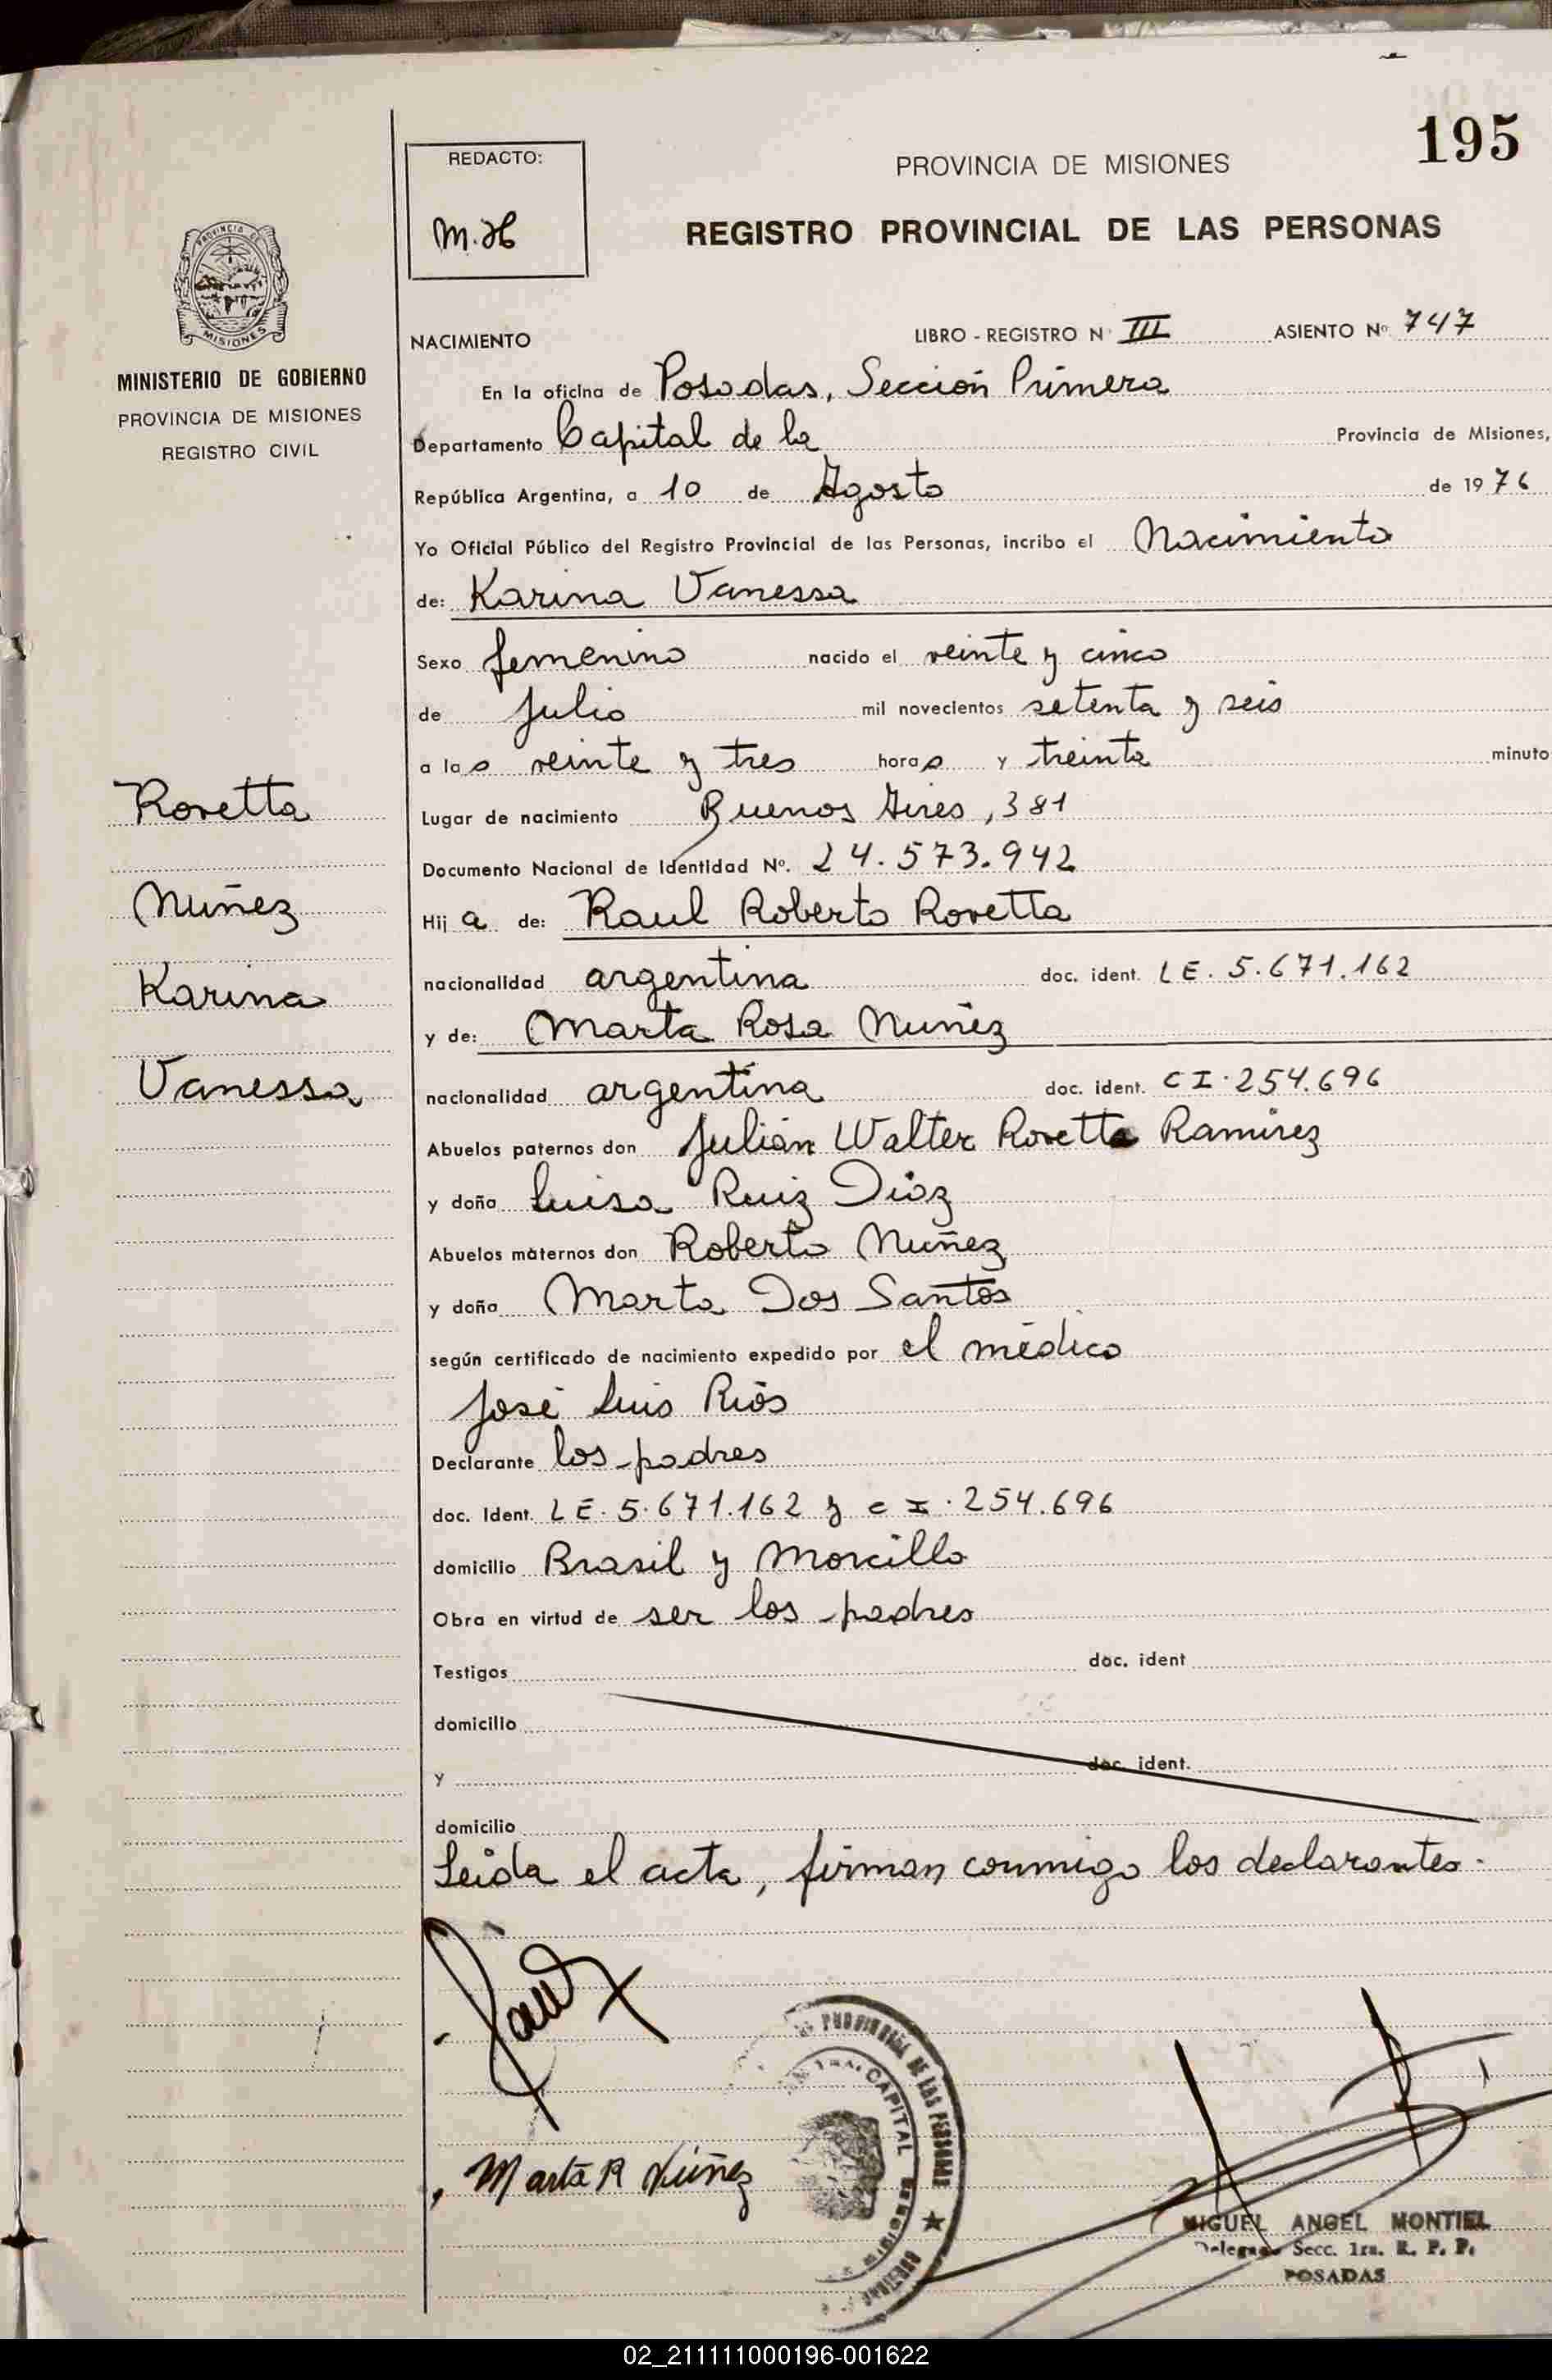 195
REDACTO:
M.H
PROVINCIA DE MISIONES
REGISTRO PROVINCIAL DE LAS PERSONAS
PROVINCIA DE
MISIONES
MINISTERIO DE GOBIERNO
PROVINCIA DE MISIONES
REGISTRO CIVIL
NACIMIENTO LIBRO - REGISTRO Nº III ASIENTO Nº 747
En la oficina de Posadas, Sección Primera
Departamento Capital de la Provincia de Misiones,
República Argentina, a 10 de Agosto de 1976
Yo Oficial Público del Registro Provincial de las Personas, incribo el Nacimiento
de: Karina Vanessa
Sexo femenino nacido el veinte y cinco
de Julio mil novecientos setenta y seis
a las veinte y tres horas y treinta minuto
Rovetta
Lugar de nacimiento Buenos Aires, 381
Documento Nacional de Identidad Nº. 24.573.942
Nuñez
Hija de: Raul Roberto Rovetta
Karina
nacionalidad argentina doc. ident. LE. 5.671.162
y de: Marta Rosa Nuñez
Vanessa
nacionalidad argentina doc. ident. CI. 254.696
Abuelos paternos don Julián Walter Rovetta Ramirez
y doña Luisa Ruiz Diaz
Abuelos maternos don Roberto Nuñez
y doña Marta Dos Santos
según certificado de nacimiento expedido por el médico
José Luis Ríos
Declarante los padres
doc. Ident. LE. 5.671.162 y CI. 254.696
domicilio Brasil y Morcillo
Obra en virtud de ser los padres
Testigos doc. ident
domicilio
y doc. ident.
domicilio
Leida el acta, firman conmigo los declarantes.
Marta R Núñez
PROVINCIAL DE LAS PERSONAS
CAPITAL
MIGUEL ANGEL MONTIEL
Delegado Secc. 1ra. R. P. P.
POSADAS
02_211111000196-001622